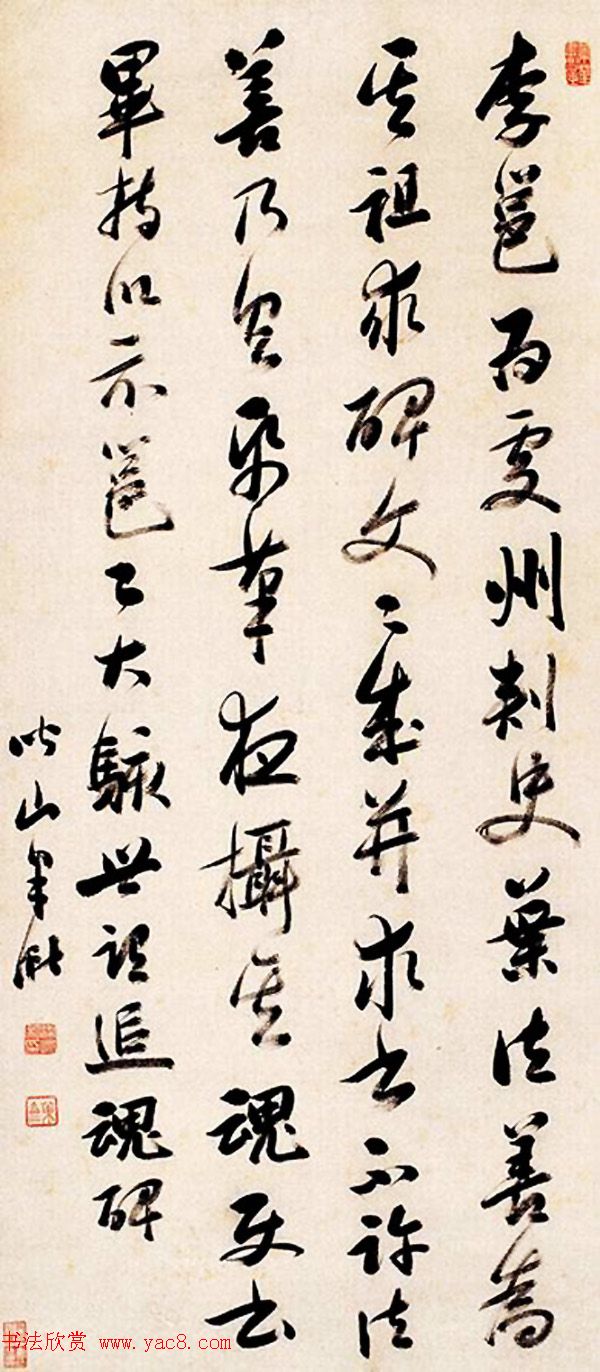 李邕為處州刺史葉法善為
其祖求碑文々成并求書不許法
善乃具帋筆夜攝其魂使書
畢持以示邕々大駭世謂追魂碑
山
书法欣赏 www.yac8.com